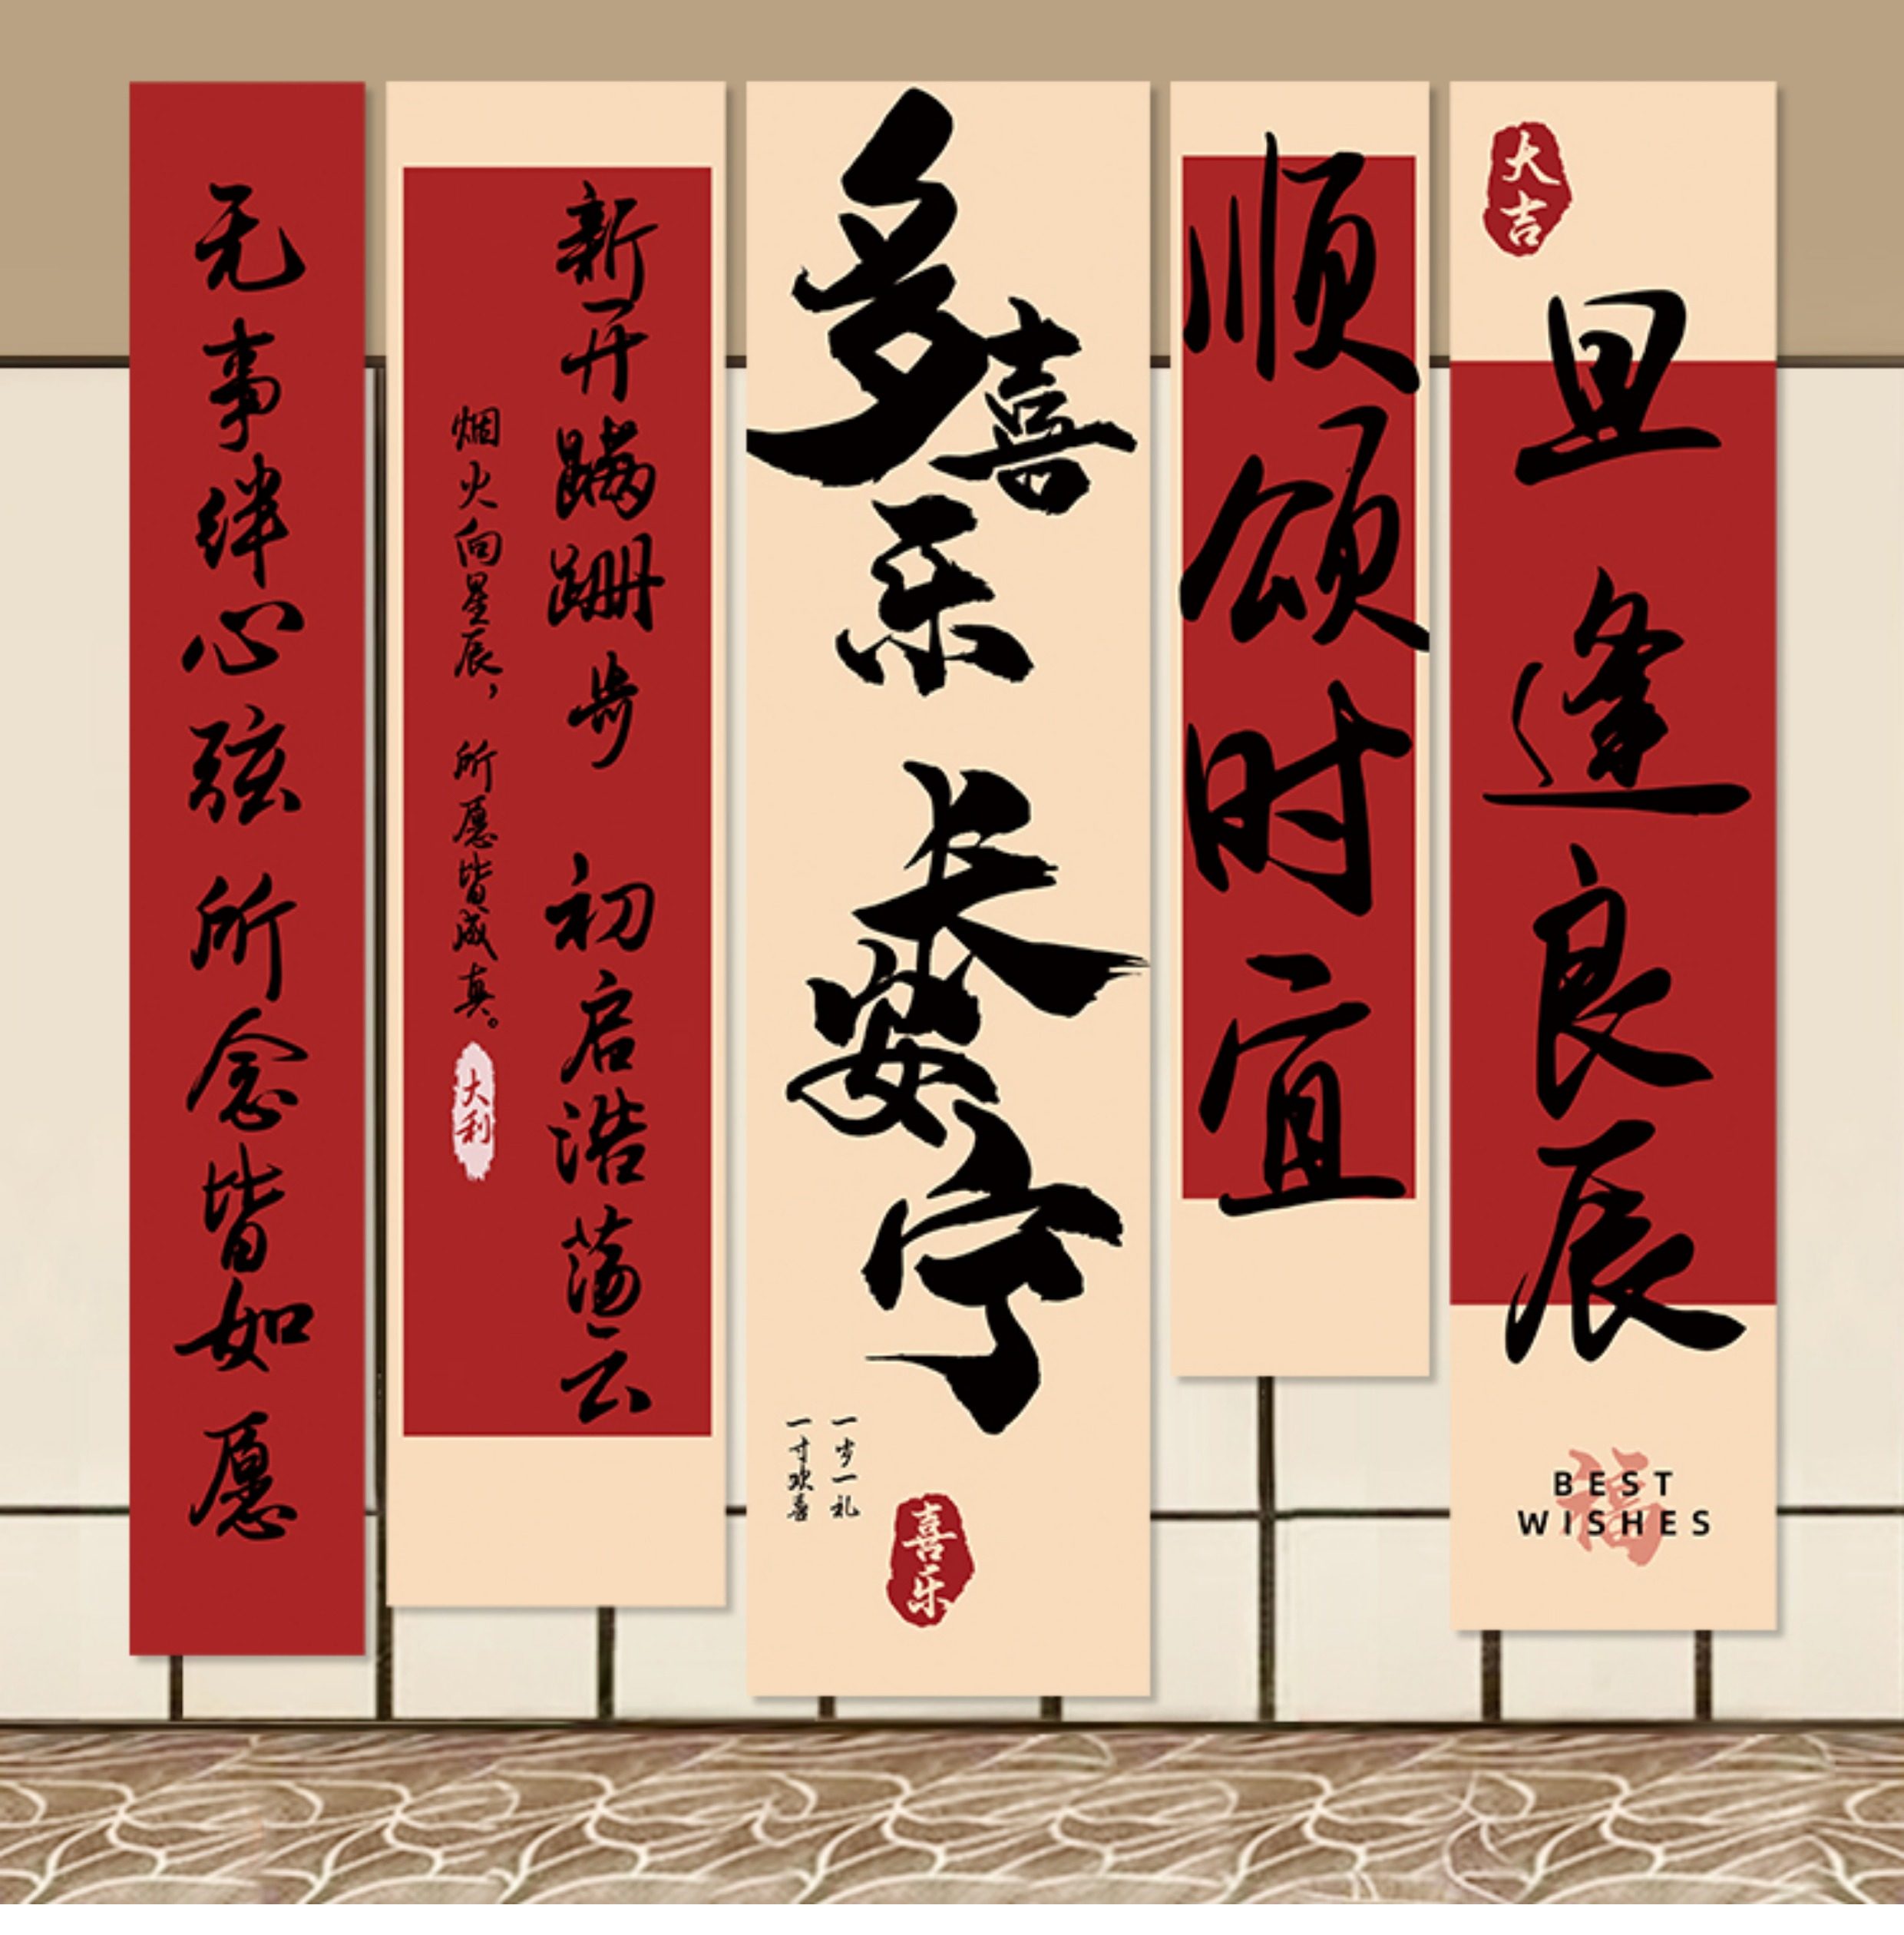 无事绊心弦所念皆如愿
新开蹒跚步 初启浩荡云
烟火向星辰，所愿皆成真。
大利
多喜乐 长安宁
一岁一礼
一寸欢喜
喜乐
顺颂时宜
大吉
且逢良辰
福
BEST
WISHES